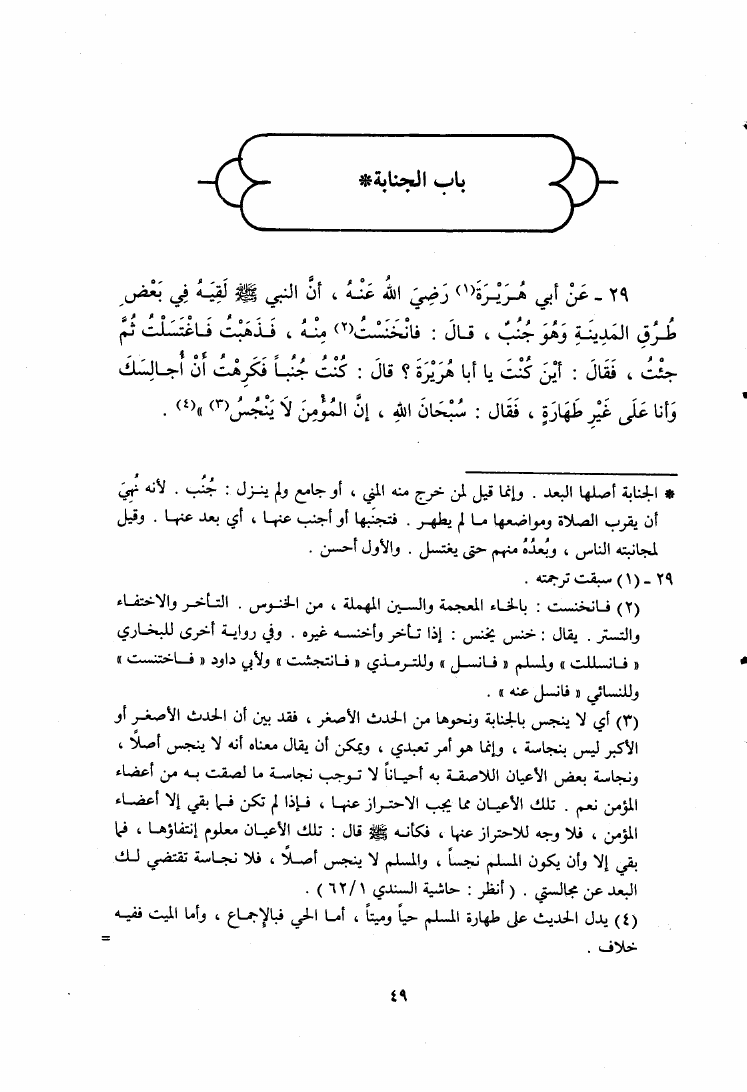 باب الجنابة*
٢٩ - عَنْ أبي هُرَيْرَةَ(١) رَضِيَ اللهُ عَنْهُ ، أنَّ النبي ﷺ لَقِيَهُ فِي بَعْضِ
طُرُقِ المَدِينَةِ وَهُوَ جُنُبٌ ، قالَ : فانْخَنَسْتُ(٢) مِنْهُ ، فَذَهَبْتُ فَاغْتَسَلْتُ ثُمَّ
جئْتُ ، فَقَالَ : أيْنَ كُنْتَ يا أبا هُرَيْرَةَ ؟ قالَ : كُنْتُ جُنُباً فَكَرِهْتُ أنْ أُجالِسَكَ
وَأنا عَلَى غَيْرِ طَهَارَةٍ ، فَقَال : سُبْحَانَ اللهِ ، إنَّ المُؤْمِنَ لاَ يَنْجُسُ(٣) »(٤) .
* الجنابة أصلها البعد . وإنما قيل لمن خرج منه المني ، أو جامع ولم ينزل : جُنُب . لأنه نُهِيَ
أن يقرب الصلاة ومواضعها ما لم يطهر . فتجنبها أو أجنب عنها ، أي بعد عنها . وقيل
لمجانبته الناس ، وبُعدُهُ منهم حتى يغتسل . والأول أحسن .
٢٩ - (١) سبقت ترجمته .
(٢) فانخنست : بالخاء المعجمة والسين المهملة ، من الخنوس . التأخر والاختفاء
والتستر . يقال : خنس يخنس : إذا تأخر وأخنسه غيره . وفي رواية أخرى للبخاري
« فانسللت » ولمسلم « فانسل » وللترمذي « فانتجشت » ولأبي داود « فاختنست »
وللنسائي « فانسل عنه » .
(٣) أي لا ينجس بالجنابة ونحوها من الحدث الأصغر ، فقد بين أن الحدث الأصغر أو
الأكبر ليس بنجاسة ، وإنما هو أمر تعبدي ، ويمكن أن يقال معناه أنه لا ينجس أصلاً ،
ونجاسة بعض الأعيان اللاصقة به أحياناً لا توجب نجاسة ما لصقت به من أعضاء
المؤمن نعم . تلك الأعيان مما يجب الاحتراز عنها ، فإذا لم تكن فما بقي إلا أعضاء
المؤمن ، فلا وجه للاحتراز عنها ، فكأنه ﷺ قال : تلك الأعيان معلوم إنتفاؤها ، فما
بقي إلا وأن يكون المسلم نجساً ، والمسلم لا ينجس أصلاً ، فلا نجاسة تقتضي لك
البعد عن مجالستي . ( أنظر : حاشية السندي ٦٢/١ ) .
(٤) يدل الحديث على طهارة المسلم حياً وميتاً ، أما الحي فبالإجماع ، وأما الميت ففيه
خلاف .
=
٤٩